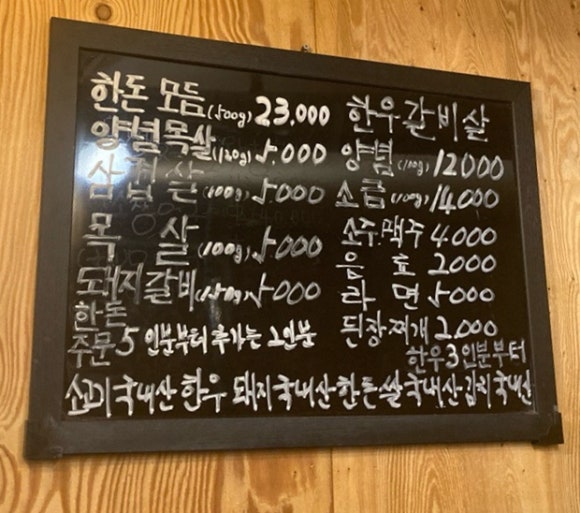 한돈 모듬 (500g) 23,000
양념목살 (120g) 5,000
삼겹살 (100g) 5,000
목살 (100g) 5,000
돼지갈비 5000
한돈
주문 5인분부터 추가는 2인분
한우갈비살
양념 (100g) 12000
소금 (100g) 14000
소주.맥주 4000
음료 2000
라면 5000
된장찌개 2,000
한우3인분부터
소고기국내산 한우 돼지국내산한돈 쌀국내산 김치국내산